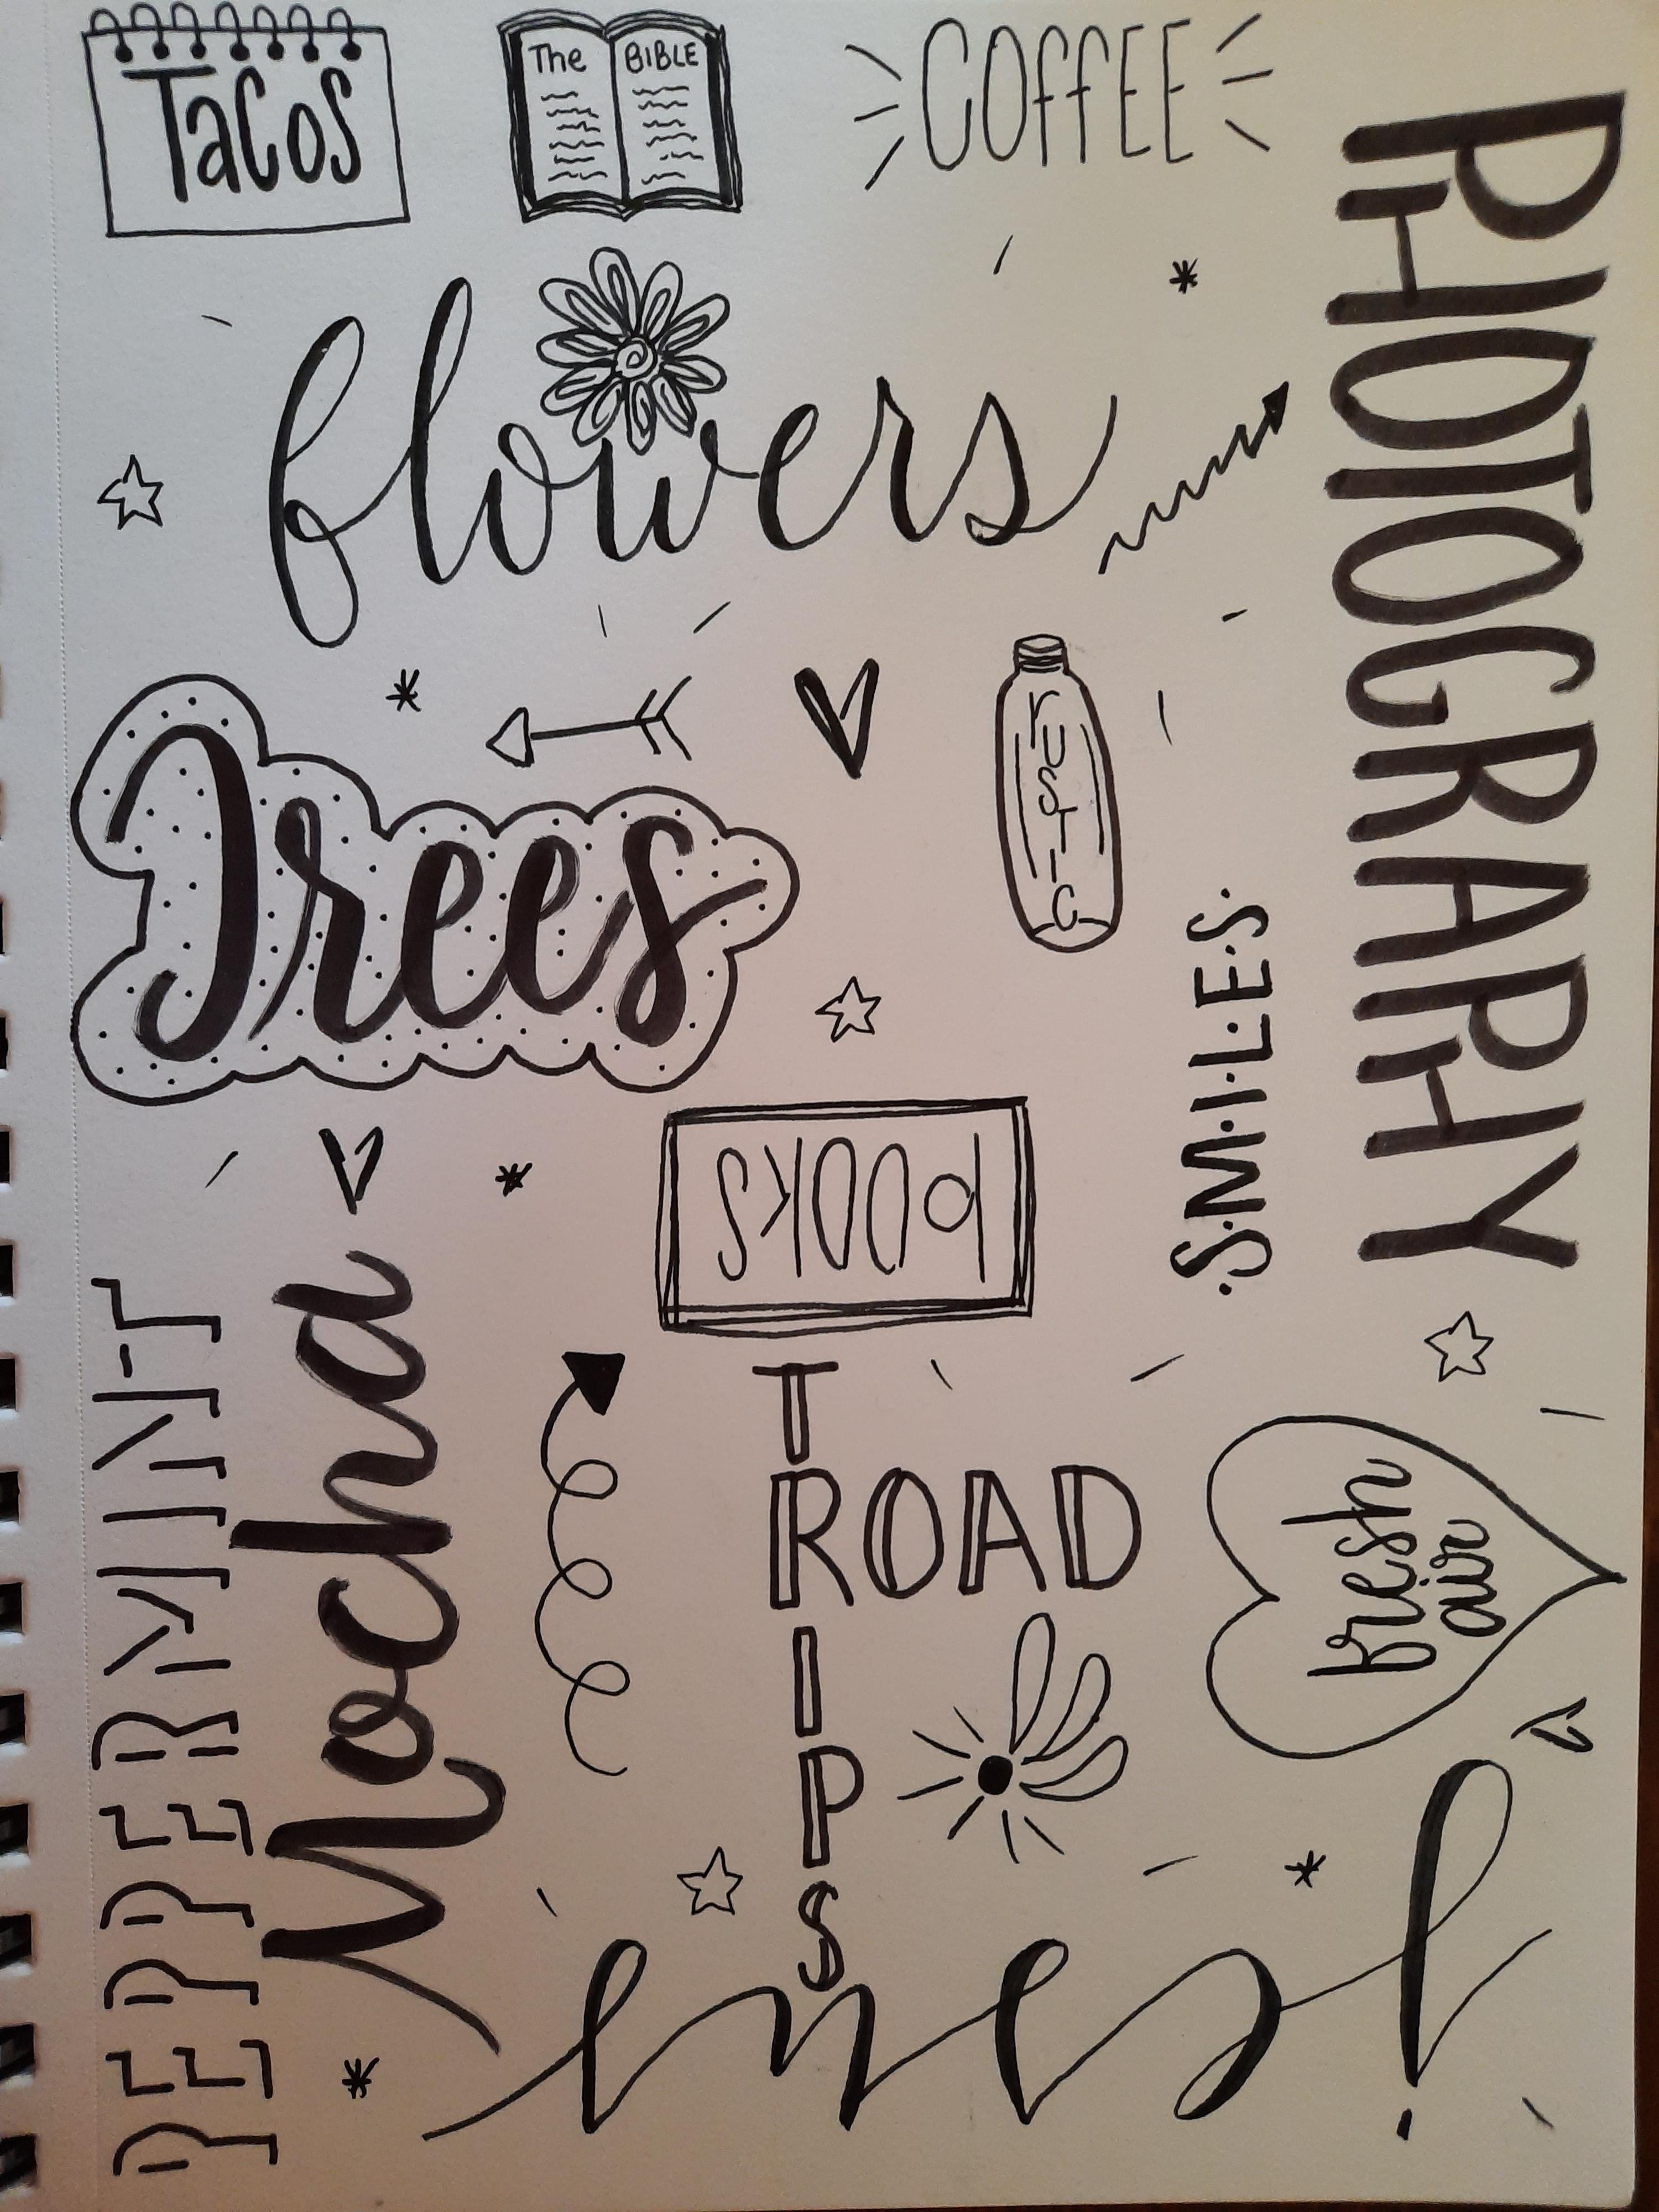 Tacos
The BIBLE
COffEE
PHOTOGRAPHY
flowers
rustic
Trees
·S·M·I·L·E·S·
bOOKS
PEPPERMINT
Mocha
ROAD
TRIPS
fresh
air
jesus